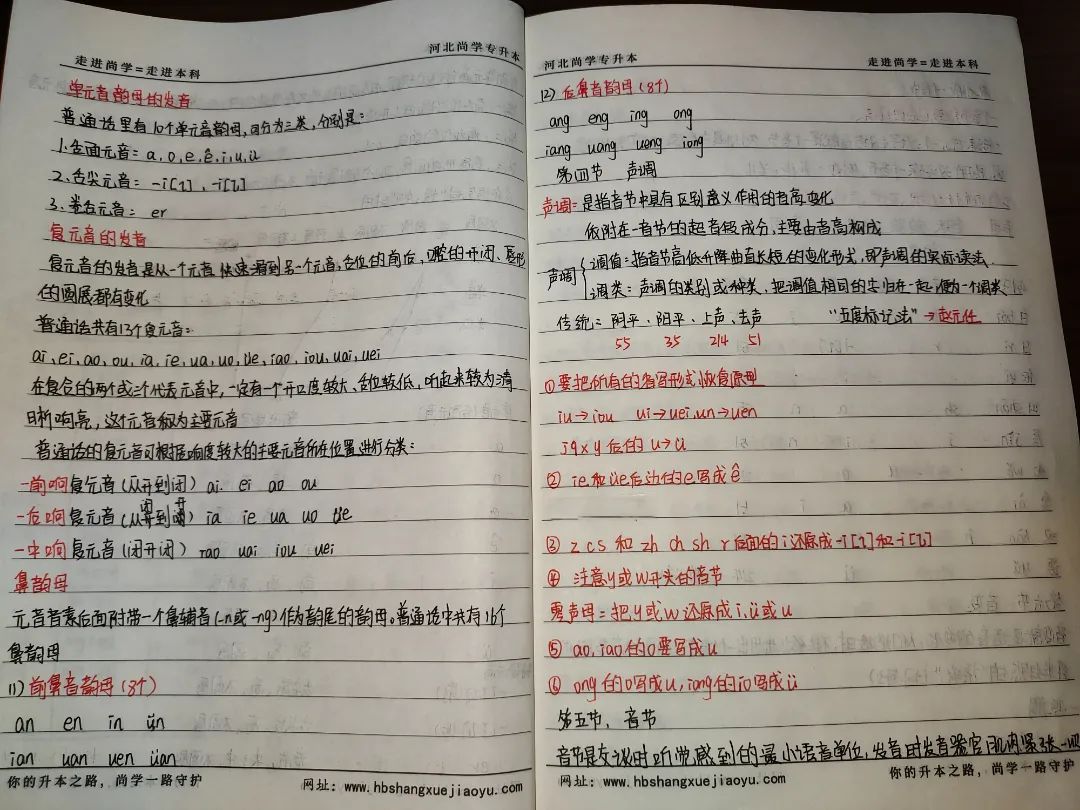 走进尚学=走进本科
河北尚学专升本
单元音韵母的发音
普通话里有10个单元音韵母,可分为三类,分别是:
1.舌面元音:a,o,e,ê,i,u,ü
2.舌尖元音:-i[ɿ],-i[ʅ]
3.卷舌元音:er
复元音的发音
复元音的发音是从一个元音快速滑到另一个元音,舌位的前后,口腔的开闭、唇形
的圆展都有变化
普通话共有13个复元音:
ai,ei,ao,ou,ia,ie,ua,uo,üe,iao,iou,uai,uei
在复合的两个或三个代表元音中,一定有一个开口度较大、舌位较低,听起来较为清
晰响亮,这个元音称为主要元音
普通话的复元音可根据响度较大的主要元音所在位置进行分类:
-前响复元音(从开到闭) ai. ei ao ou
-后响复元音(从闭到开) ia ie ua uo üe
-中响复元音(闭开闭) iao uai iou uei
鼻韵母
元音音素后面附带一个鼻辅音(-n或-ng)作为韵尾的韵母。普通话中共有16个
鼻韵母
(1)前鼻音韵母(8个)
an en in ün
ian uan uen üan
你的升本之路,尚学一路守护
网址:www.hbshangxuejiaoyu.com
河北尚学专升本
走进尚学=走进本科
(2)后鼻音韵母(8个)
ang eng ing ong
iang uang ueng iong
第四节 声调
声调:是指音节中具有区别意义作用的音高变化
依附在一音节的超音段成分,主要由音高构成
声调
调值:指音节高低升降曲直长短的变化形式,即声调的实际读法.
调类:声调的类别或种类,把调值相同的字归在一起,便为一个调类
传统:阴平、阳平、上声、去声 "五度标记法"→赵元任
55 35 214 51
①要把所有的省写形式恢复原型
iu→iou ui→uei,un→uen
jqxy后的u→ü
② ie和üe后边的e写成ê
③ z c s 和 zh ch sh r后面的i还原成-i[ɿ]和-i[ʅ]
④ 注意y或w开头的音节
零声母:把y或w还原成i,ü或u
⑤ ao,iao的o要写成u
⑥ ong的o写成u,iong的io写成ü
第五节、音节
音节是交谈时听觉感到的最小语音单位,发音时发音器官肌肉紧张一
网址:www.hbshangxuejiaoyu.com
你的升本之路,尚学一路守护